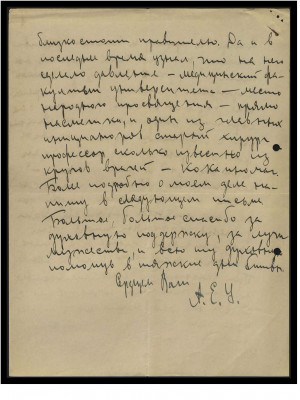 близкостоти правителю. Да и в
последнее время узнал, что на него
сделало давление – медицинский фа-
культет университета – место
народного просвещения – прямо
насмешки, и один из главных
инициаторов старший хирург
профессор сколько известно из
кругов врачей –
Более подробно о моем деле на-
пишу в следующем письме.
Большое, большое спасибо за
духовную поддержку, за луч
мужества, и всю ту духовную
помощь в тяжкие дни битвы.
Сердцем Ваш
А. Е. У.